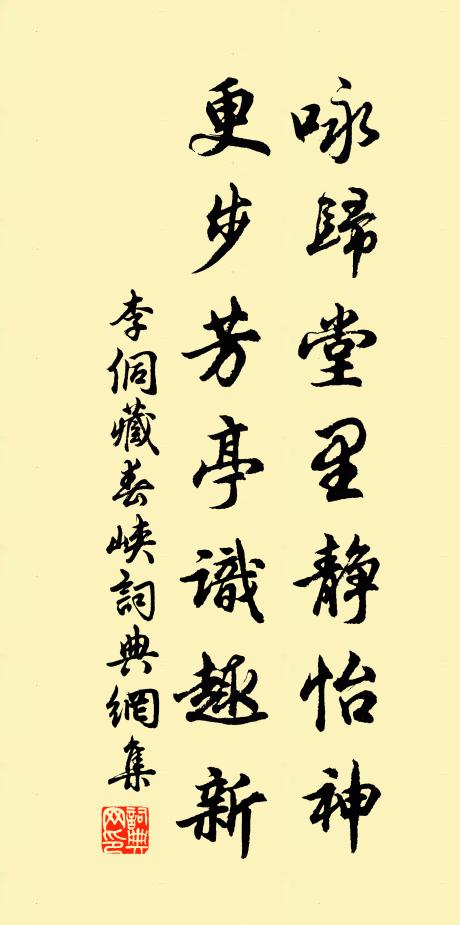 咏歸堂里静怡神
更步芳亭識趣新
李侗藏春峡詞典網集
詞典网印